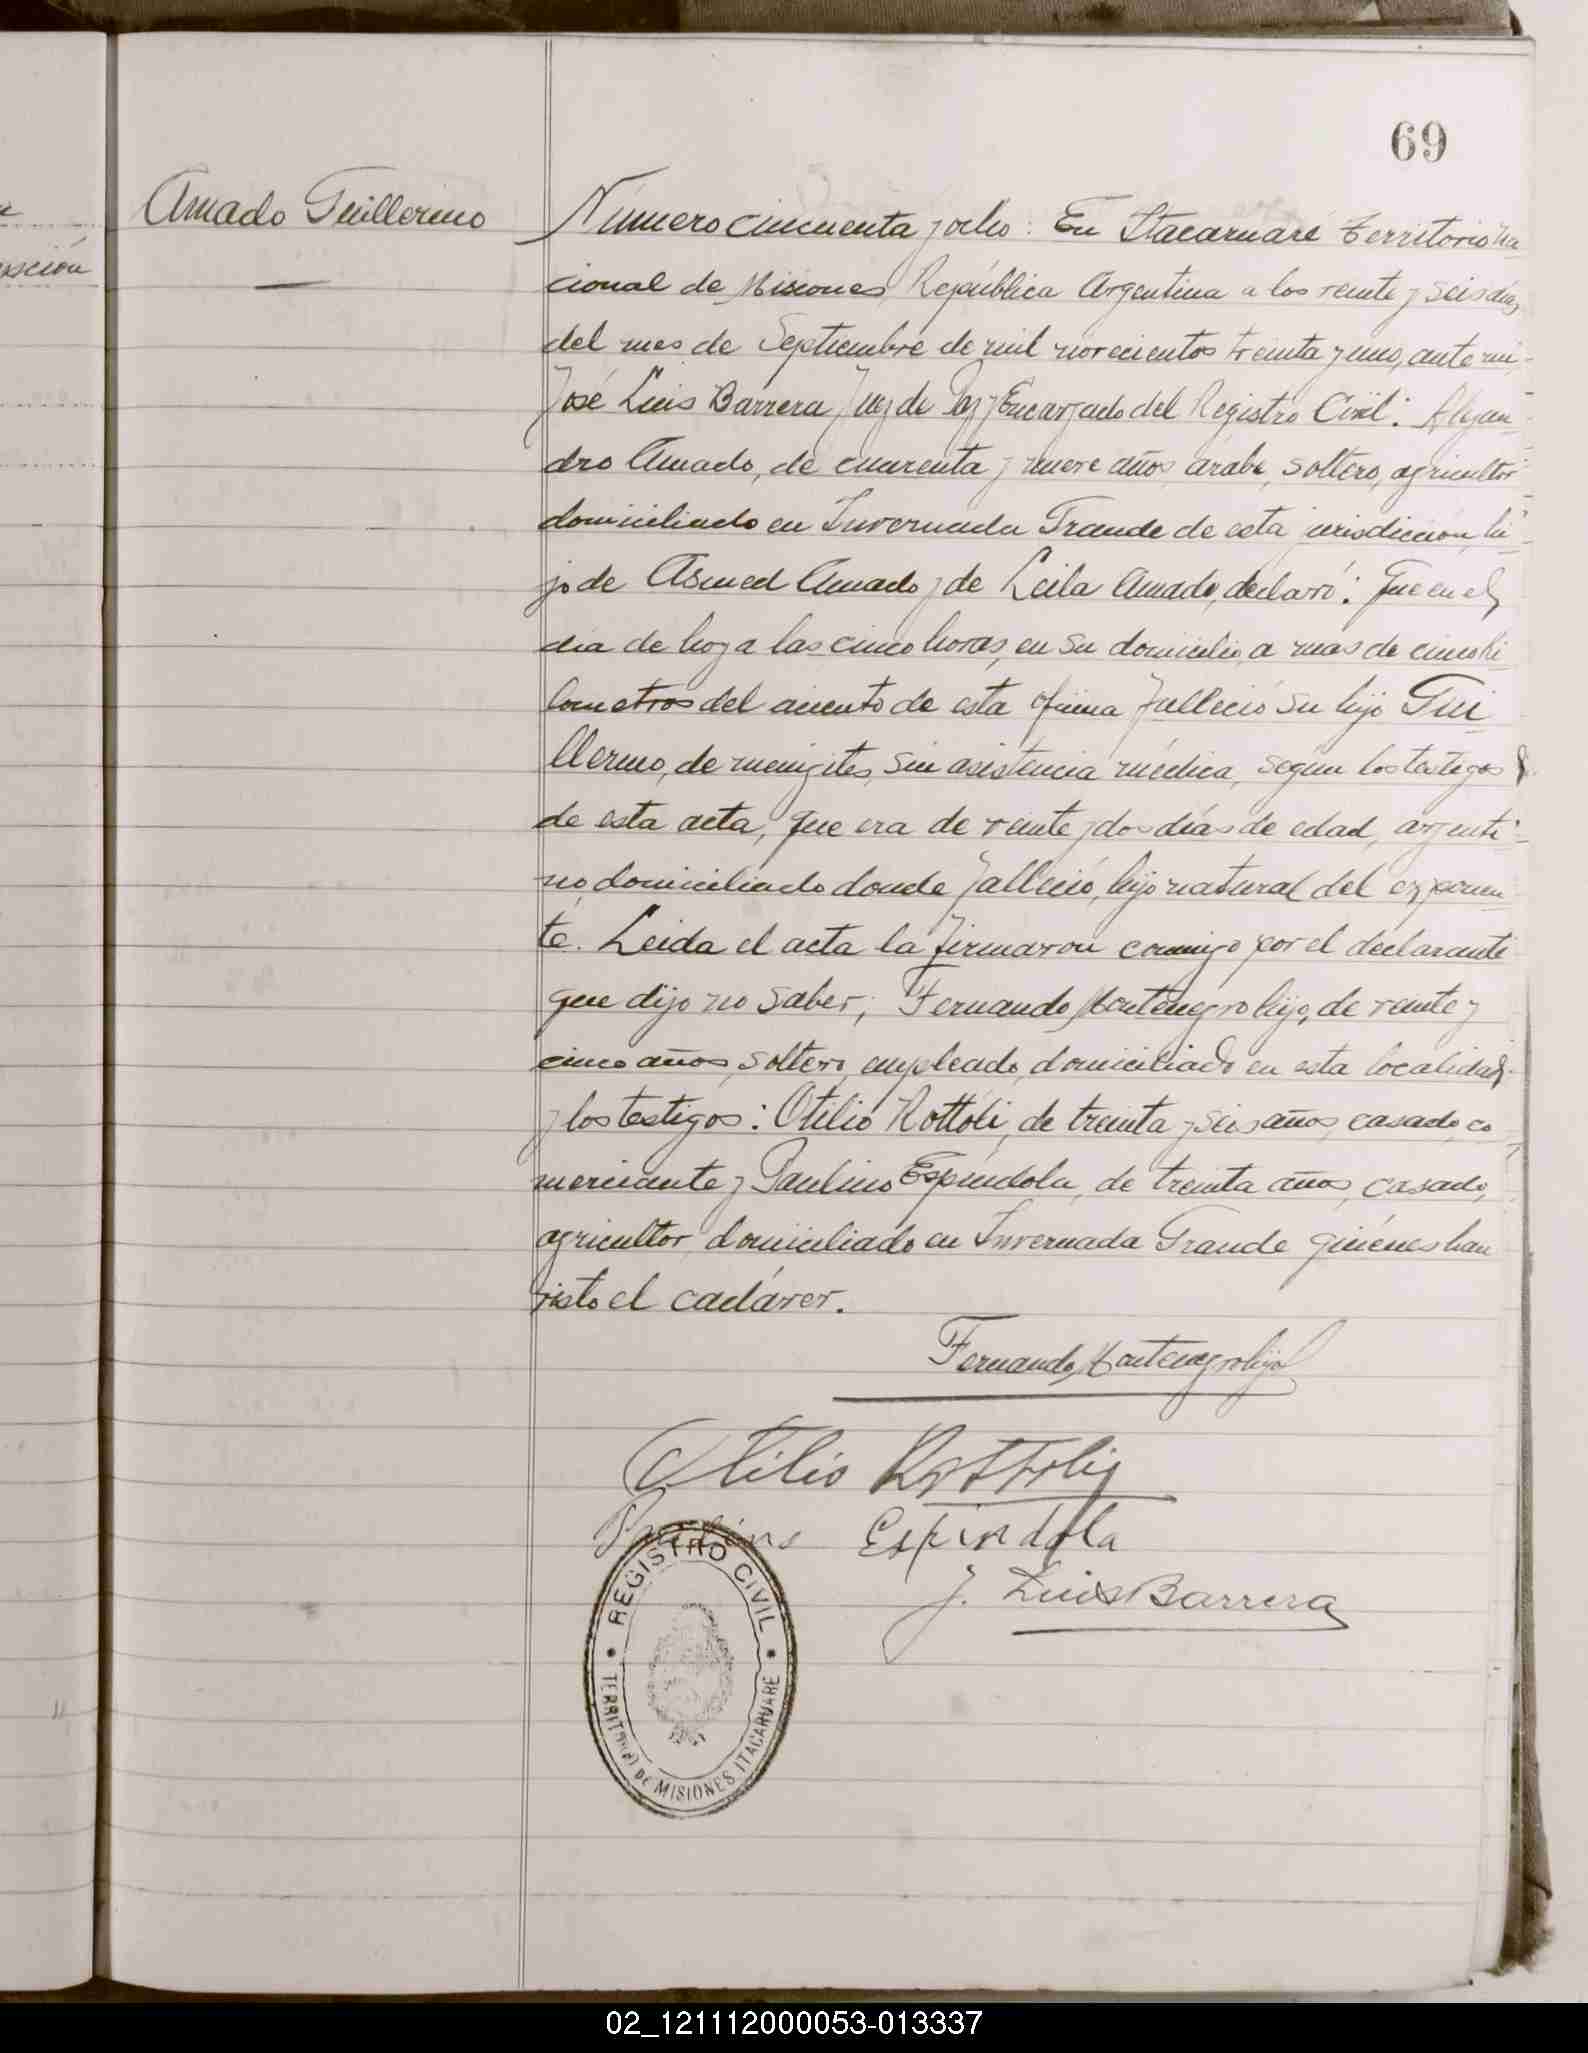 69
Amado Guillermo
Número cincuenta y ocho: En Itacaruaré Territorio na
cional de Misiones República Argentina a los veinte y seis días
del mes de Septiembre de mil novecientos treinta y uno, ante mi,
José Luis Barrera Juez de Paz y Encargado del Registro Civil: Alejan
dro Amado, de cuarenta y nueve años, árabe, soltero, agricultor
domiciliado en Invernada Grande de esta jurisdicción, hi
jo de Asmed Amado y de Leila Amado, declaró: Que en el
día de hoy a las cinco horas, en su domicilio, a mas de cinco ki
lometros del asiento de esta oficina falleció su hijo Gui
llermo, de menigites, sin asistencia médica, según los testigos
de esta acta, que era de veinte y dos días de edad, argenti
no, domiciliado donde falleció, hijo natural del exponen
te. Leida el acta la firmaron conmigo por el declarante
que dijo no saber; Fernando Montenegro hijo, de veinte y
cinco años, soltero, empleado, domiciliado en esta localidad
y los testigos: Otilio Rottoli, de treinta y seis años, casado, co
merciante y Paulino Espíndola, de treinta años, casado,
agricultor, domiciliado en Invernada Grande quiénes han
visto el cadáver.
Fernando Montenegro hijo
Otilio Rottoli
Paulino Espindola
J. Luis Barrera
REGISTRO CIVIL
TERRITORIO DE MISIONES ITACARUARE
02_121112000053-013337